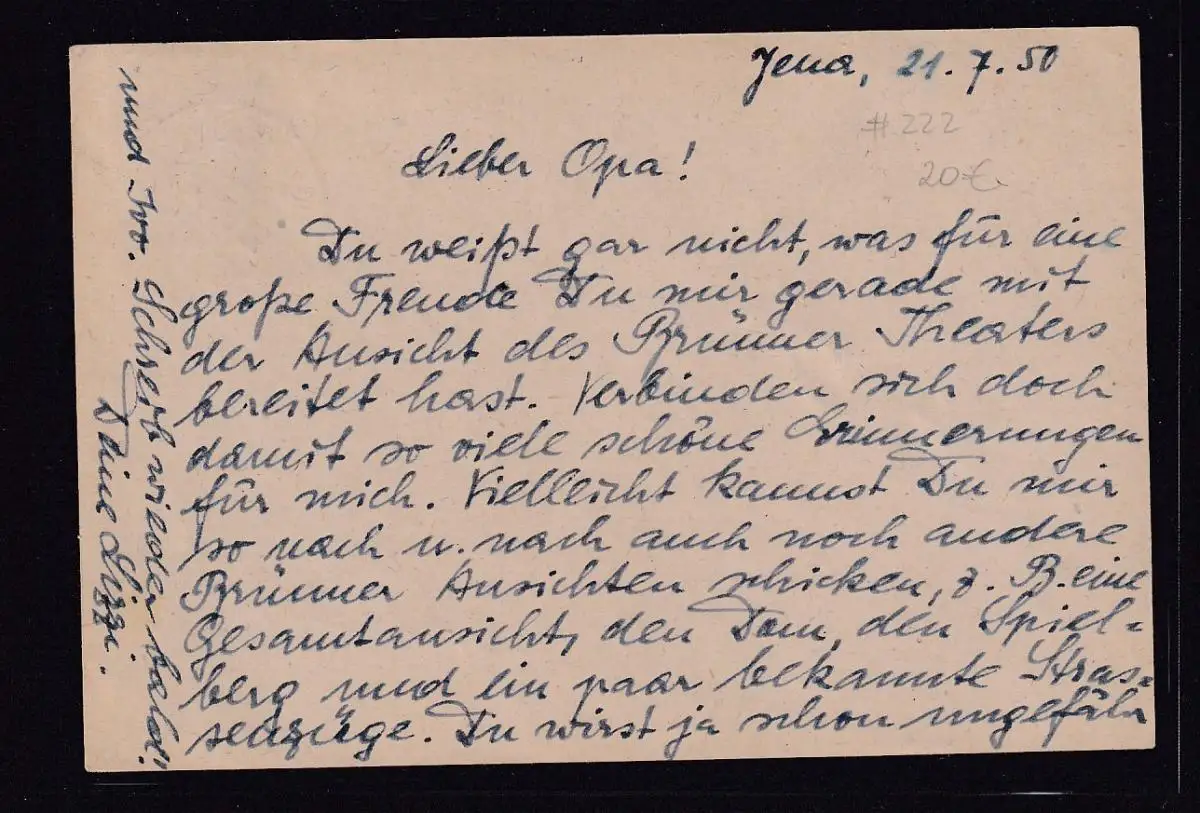 Jena, 21.7.50
#222
20€
Lieber Opa!
Du weißt gar nicht, was für eine
große Freude Du mir gerade mit
der Ansicht des Brünner Theaters
bereitet hast. Verbinden sich doch
damit so viele schöne Erinnerungen
für mich. Vielleicht kannst Du mir
so nach u. nach auch noch andere
Brünner Ansichten schicken, z. B. eine
Gesamtansicht, den Dom, den Spiel-
berg und ein paar bekannte Stras-
senzüge. Du wirst ja schon ungefähr
und Ivo. Schreib wieder bald!
Deine Sizzi.